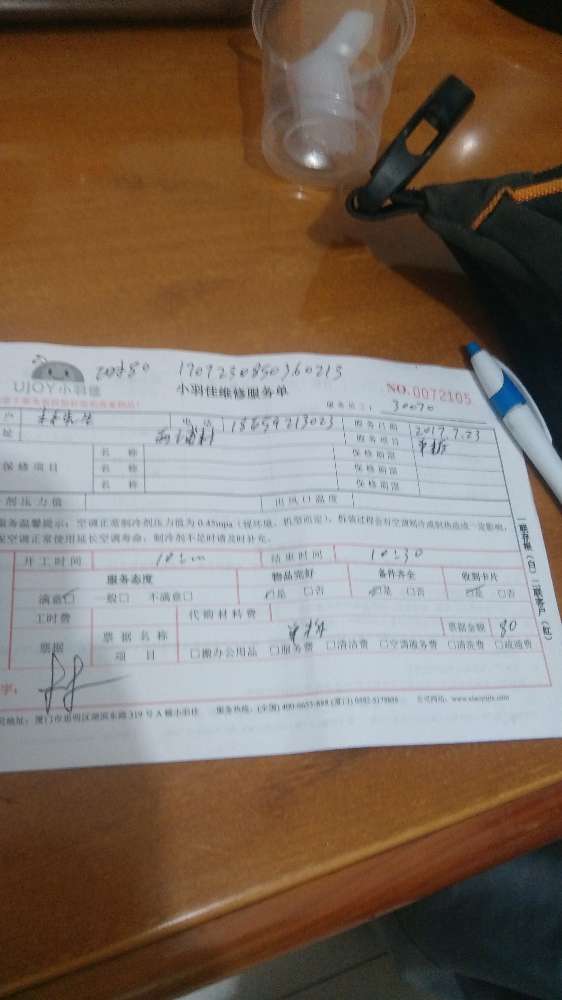 1707230850360213
UJOY小羽佳
小羽佳维修服务单
NO.0072105
服务员工： 30070
户 18659213023 服务日期 2017.7.23
址 服务项目 单拆
保修项目 名 称 保修期限
名 称 保修期限
名 称 保修期限
剂压力值 出风口温度
服务温馨提示：空调正常制冷剂压力值为0.45mpa（视环境、机型而定），拆装过程会对空调制冷或制热造成一定影响，
保空调正常使用延长空调寿命，制冷剂不足时请及时补充。
开工时间 结束时间
服务态度 物品完好 备件齐全 收到卡片
满意□ 一般□ 不满意□ □是 □否 □是 □否 □是 □否
工时费 代购材料费
票据 票据名称 单拆 票据金额 80
项 目 □搬办公用品 □服务费 □清洁费 □空调服务费 □清洗费 □疏通费
字：
司地址：厦门市思明区湖滨东路319号A幢小羽佳 服务热线：(全国)400-6655-888 (厦门) 0592-5179888 公司网站：www.xiaoyujia.com
一联存根（白） 二联客户（红）